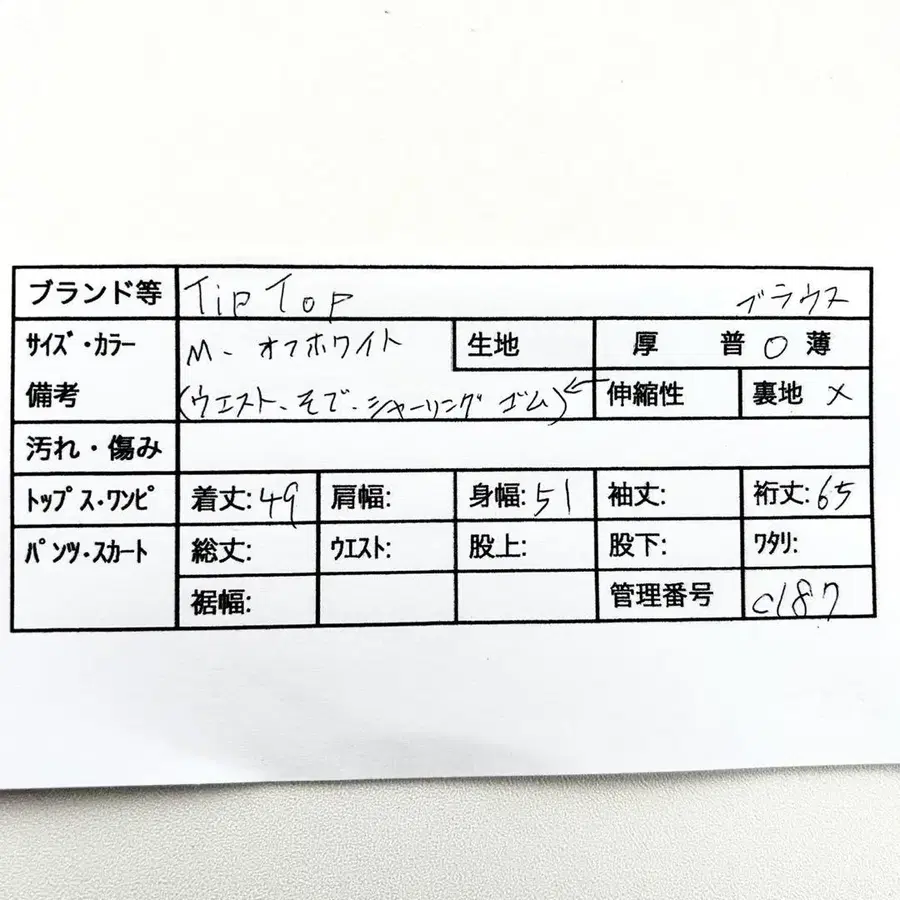 ブランド等 Tip Top ブラウス
サイズ・カラー M、オフホワイト 生地 厚 普 〇 薄
備考 (ウエスト、そで、シャーリング ゴム)← 伸縮性 裏地 ×
汚れ・傷み
トップス・ワンピ 着丈:49 肩幅: 身幅:51 袖丈: 裄丈:65
パンツ・スカート 総丈: ウエスト: 股上: 股下: ワタリ:
裾幅: 管理番号 c187